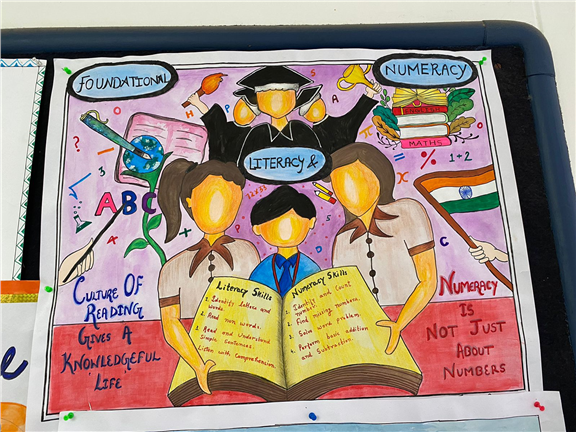 FOUNDATIONAL
NUMERACY
LITERACY &
ENGLISH
MATHS
1+2
ABC
Literacy Skills
1. Identify letters and
words.
2. Read non words.
3. Read and Understand
Simple Sentences.
Listen with Comprehension.
Numeracy Skills
1. Identify and Count
number.
2. Find missing numbers.
3. Solve word problem.
4. Perform basic addition
and Subtraction.
CULTURE OF
READING
GIVES A
KNOWLEDGEFUL
LIFE
NUMERACY
IS
NOT JUST
ABOUT
NUMBERS